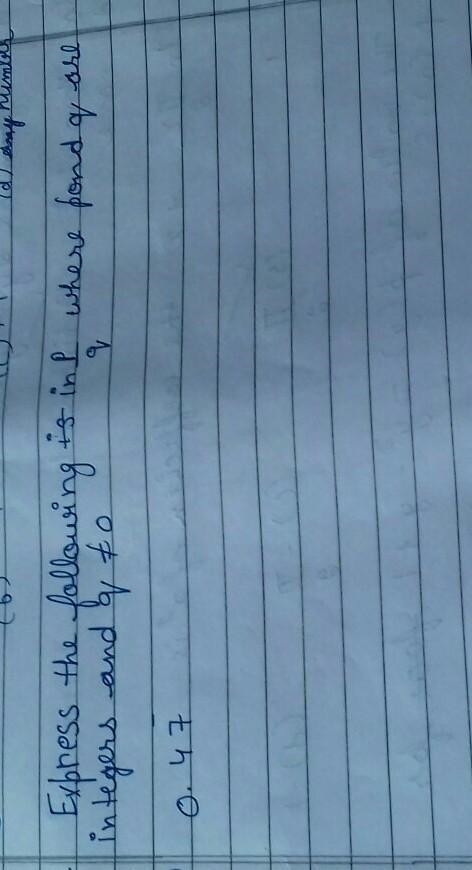 (b)
(d) any number
Express the following is in p/q where p and q are
integers and q ≠ 0
0.47̅